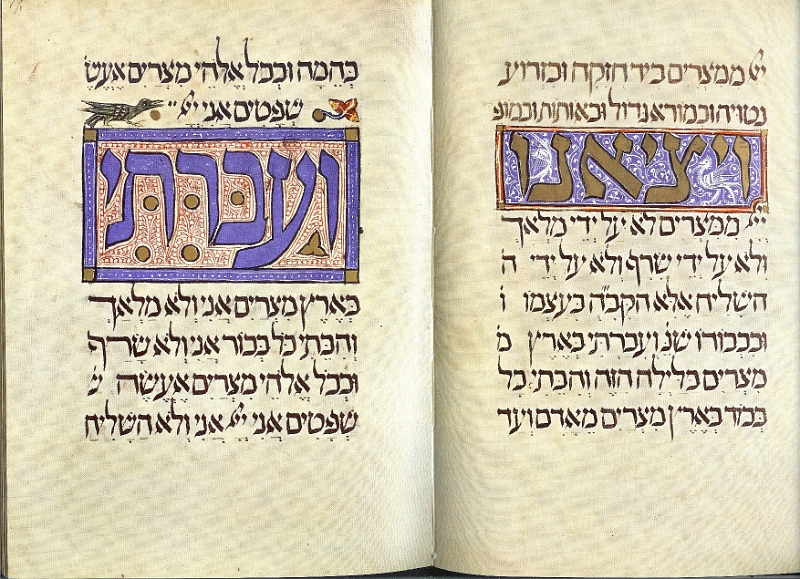 יי ממצרים ביד חזקה ובזרוע
נטויה ובמורא גדול ובאותות ובמופ
ויציאנו
יי ממצרים לא על ידי מלאך
ולא על ידי שרף ולא על ידי ה
השליח אלא הקב"ה בעצמו ו
ובכבודו שנ' ועברתי בארץ מ
מצרים בלילה הזה והכתי כל
בכור בארץ מצרים מאדם ועד
בהמה ובכל אלהי מצרים אעש
שפטים אני יי
ועברתי
בארץ מצרים אני ולא מלאך
והכתי כל בכור אני ולא שרף
ובכל אלהי מצרים אעשה ש
שפטים אני יי אני ולא השליח